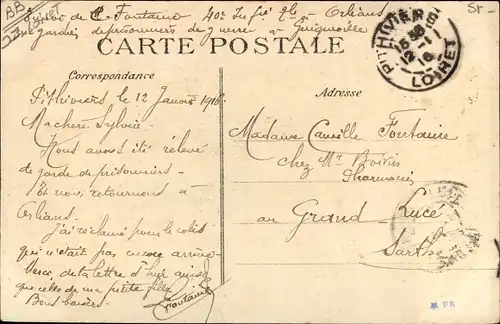 BB
de C. Fontaine 40e Orléans
de prisonniers de guerre
CARTE POSTALE
PITHIVIERS
15 35
12 -1
16
LOIRET
Correspondance
Adresse
Pithiviers le 12 Janvier 1916
Ma chère Sylvie
Nous avons été relevé
de garde de prisonniers
Et nous retournons à
Orléans
J'ai réclamé pour le colis
qui n'était pas encore arrivé
de ta lettre d'hier ainsi
que celle de ma petite fille
Bons baisers
Fontaine
Madame Camille Fontaine
chez Mr Boivin
Pharmacie
au Grand Lucé
Sarthe